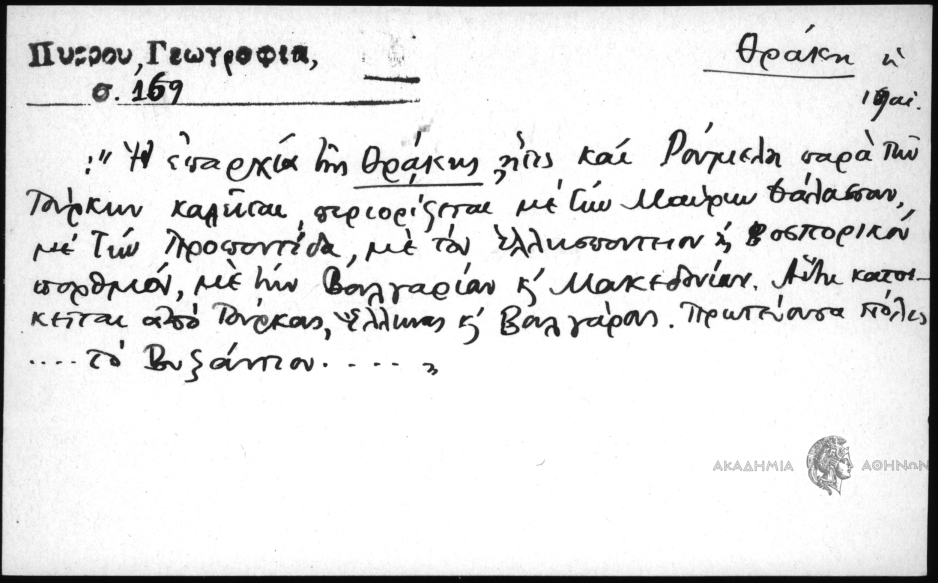 Πύρρου, Γεωγραφία,
σ. 169
Θράκη ἡ
19 αἰ.
: " Ἡ ἐπαρχία τῆς Θράκης, ἥτις καὶ Ρούμελη παρὰ τῶν
Τούρκων καλεῖται, περιορίζεται μὲ τὴν Μαύρην Θάλασσαν,
μὲ τὴν Προποντίδα, μὲ τὸν Ἑλλησπόντιον κ̓ Βοσπορικόν
πορθμόν, μὲ τὴν Βουλγαρίαν κ̓ Μακεδονίαν. Αὕτη κατοι-
κεῖται ἀπό Τούρκους, Ἕλληνας κ̓ Βουλγάρους. Πρωτεύουσα πόλις
.... τό Βυζάντιον..... "
ΑΚΑΔΗΜΙΑ ΑΘΗΝΩΝ